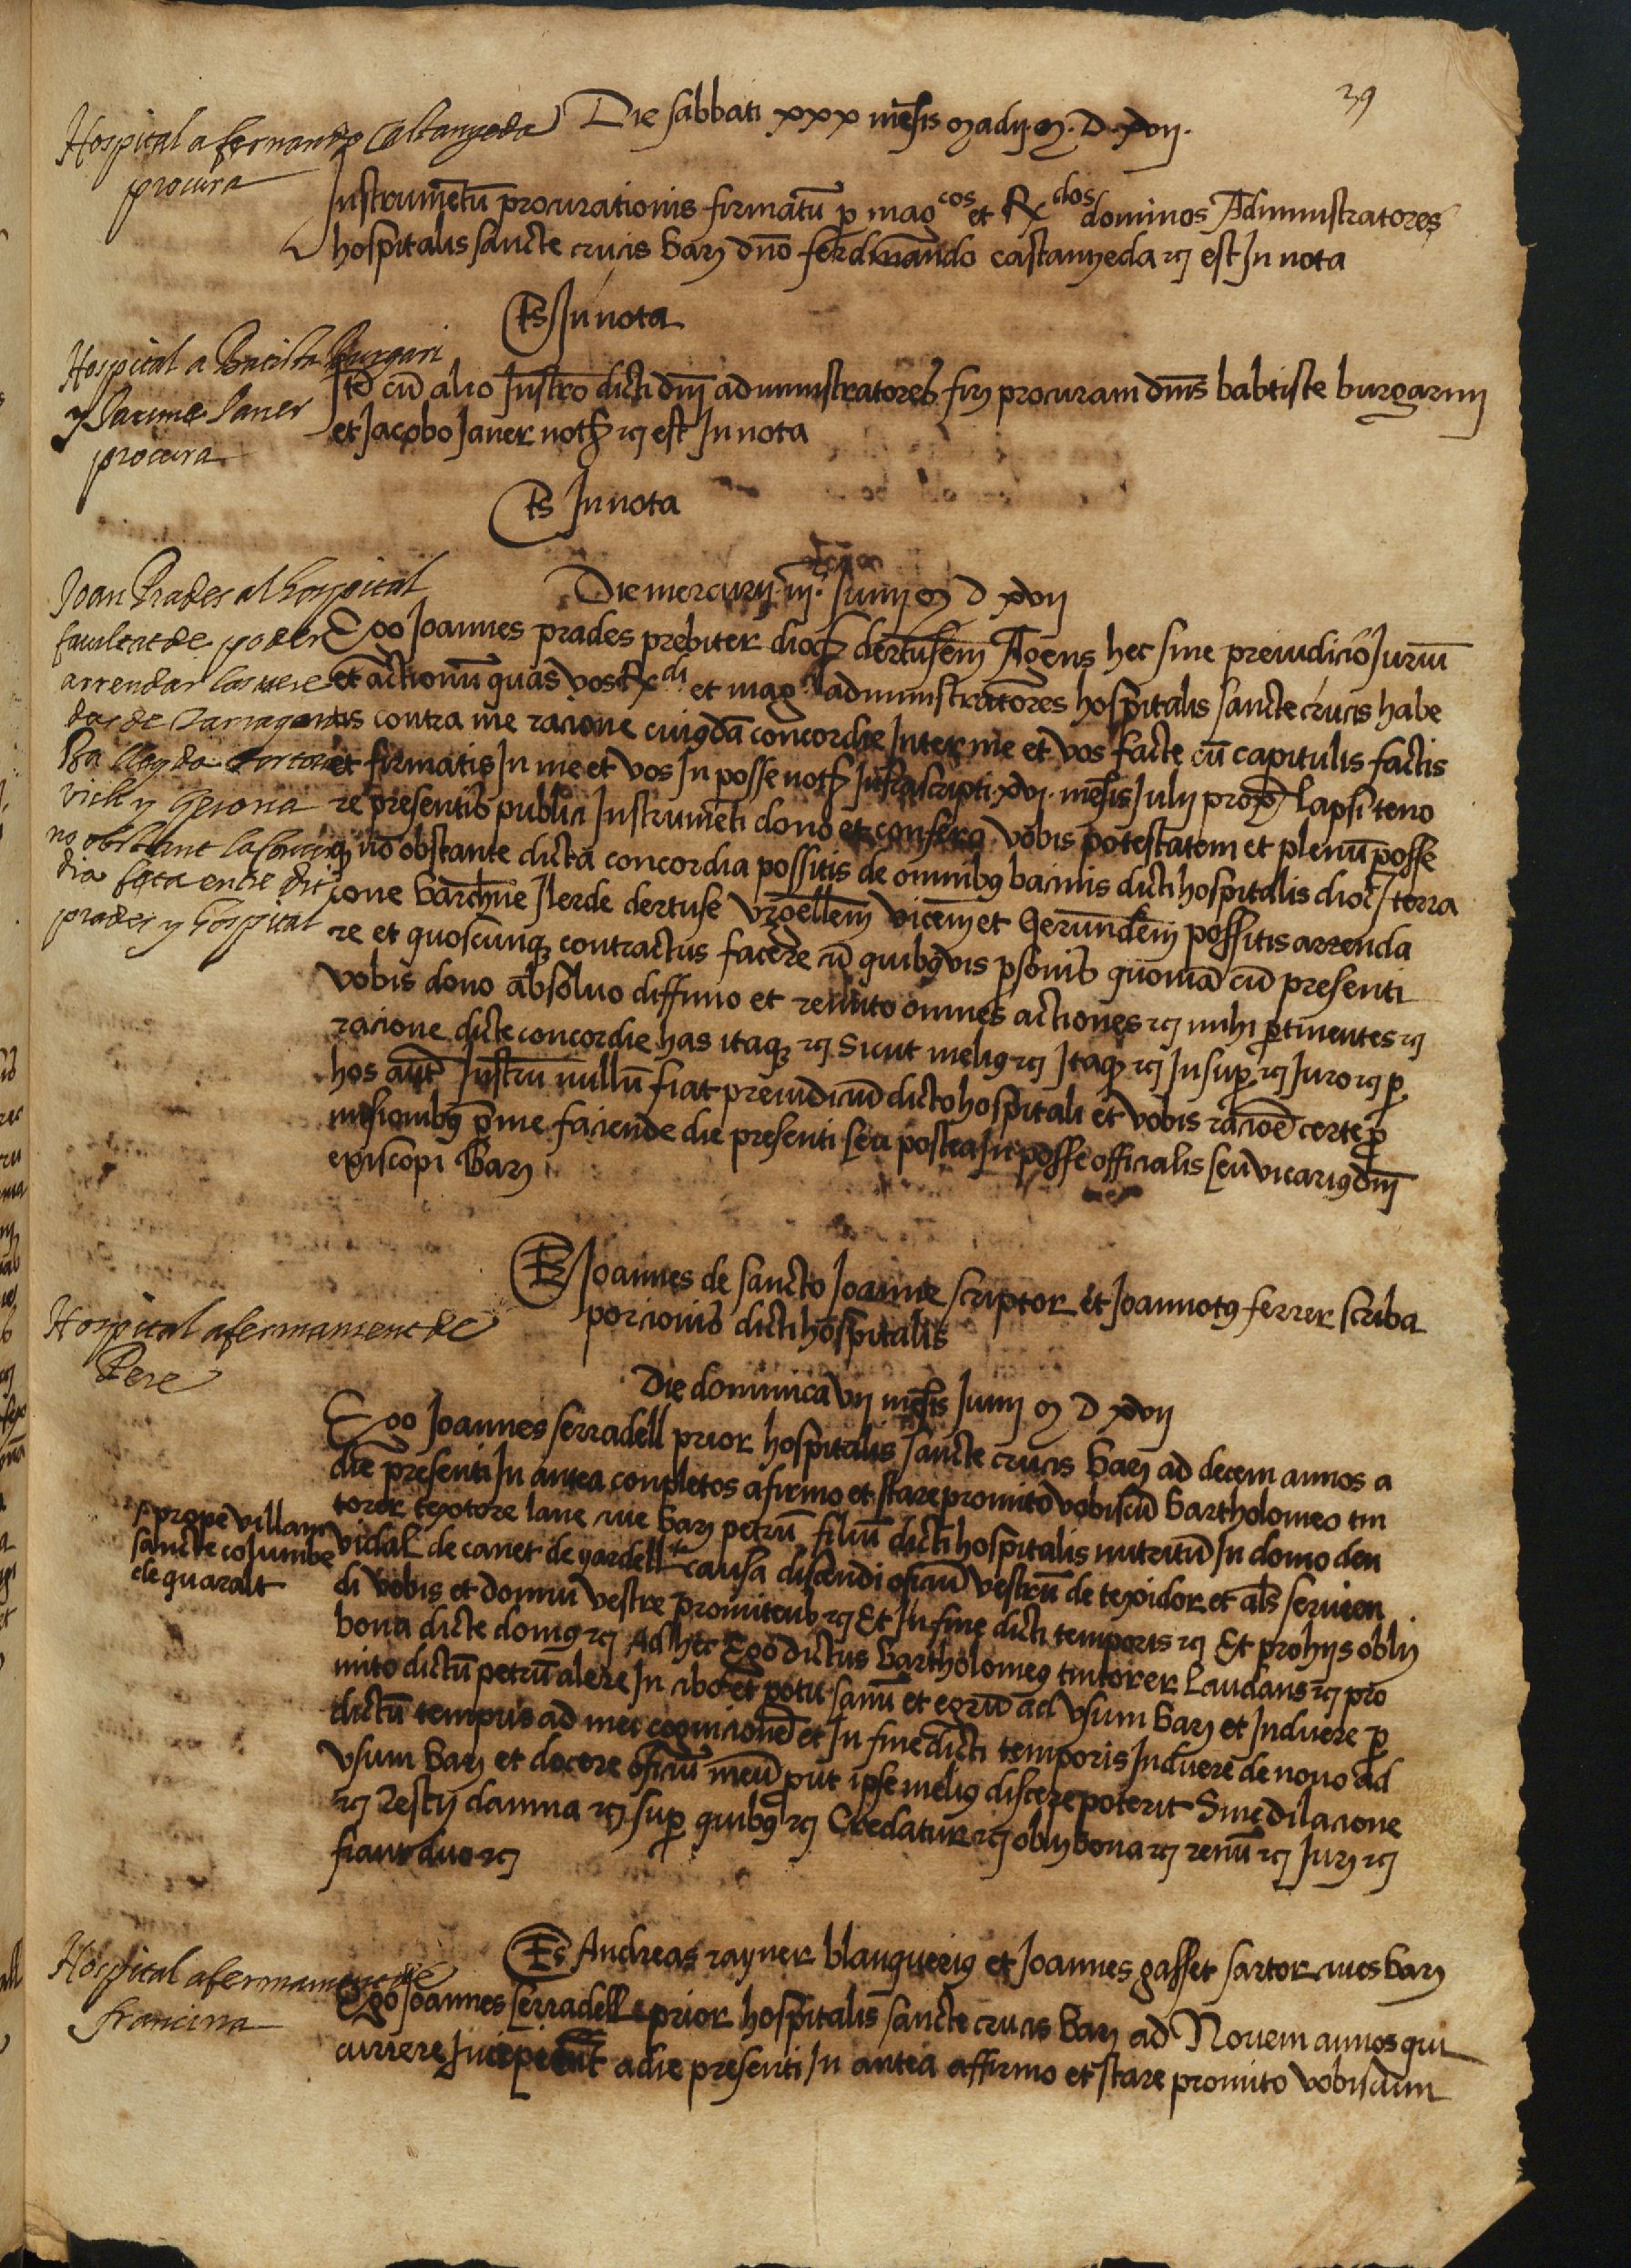 39
Die sabbati xxx mēsis madij M. D. xvij.
Hospital a fernando Castanyeda
procura
Instrumētū procurationis firmatū p magcos et Rdos dominos Administratores
hospitalis sancte crucis barñ dno ferdinando castanyeda etc est In nota
Ts In nota
Hospital a Batista Burgari
y Jaume Janer
procura
Itē cū alio Instro dicti dnj administratores firñ procuram dnis babtiste burgarinj
et Jacobo Janer notº etc est In nota
Ts In nota
Joan Prades al hospital
facultat de poder
arrendar los
de Tarragona
Ba Lleyda Tortosa
Vich y Gerona
no obstant la concor
dia feta entre dit
prades y hospital
Die mercurij iij. Junij M D xvij
Ego Joannes prades prebiter dioc dertusem Agens hec sine preiudicio Juriū
et actionū quas vos Rdi et mag administratores hospitalis sancte crucis habe
tis contra me racione cuiusdā concordie Inter me et vos facte cū capitulis factis
et firmatis In me et vos In posse notº Infrascripti xvj. mēsis Julij prop lapsi teno
re presentis publici Instrumēti dono et confero vobis potestatem et plenū posse
q nō obstante dicta concordia possitis de omnibus bacinis dicti hospitalis dioc terra
cone barchne Ilerde dertuse vrgellem vicem et Gerundem possitis arrenda
re et quoscunq contractus facere cū quibusvis psonis quoniā cū presenti
vobis dono absoluo diffinio et remito omnes actiones etc mihi ptinentes etc
racione dicte concordie has itaq etc Sicut melius etc Itaq etc Insup etc Juro etc p
hos autē Instrū nullū fiat preiudiciū dicto hospitali et vobis racioē certe p
misionibus p me faciende die presenti seu postea In posse officialis seu vicarius dnj
episcopi Barñ
Ts Joannes de sancto Joanne scriptor et Joannotus ferrer scriba
porcionis dicti hospitalis
Hospital afermament de
Pere
Die dominica vij mēsis Junij M D xvij
Ego Joannes serradell prior hospitalis sancte crucis barñ ad decem annos a
die presenti In antea conpletos afirmo et stare promito vobiscū bartholomeo tin
torer texotore lane cive barñ petrū filiū dicti hospitalis nutritū In domo den
vidal de canet de yardell causa discendi oficiū vestrū de texidor et als seruien
prope villam
sancte columbe
de quaralt
di vobis et domui vestre promitens etc Et In fine dicti temporis etc Et pro hijs oblij
bona dicte domus etc Ad hec Ego dictus bartholomeus tintorer Laudans etc pro
mito dictū petrū alere In cibo et potu sanū et egrū ad vsum barñ et Induere p
dictū tempus ad mei cognicionē et In fine dicti temporis Induere de nouo ad
vsum barñ et docere oficiū meū put ipse melius discere poterit Sine dilacione
etc Restij damna etc sup quibus etc Credatur etc oblij bona etc renū etc Jurñ etc
fiant duo etc
Ts Andreas rayner blanquerius et Joannes gasset sartor cives barñ
Hospital afermament de
francina
Ego Joannes serradell prior hospitalis sancte crucis barñ ad Nouem annos qui
currere Incipient a die presenti In antea affirmo et stare promito vobiscum